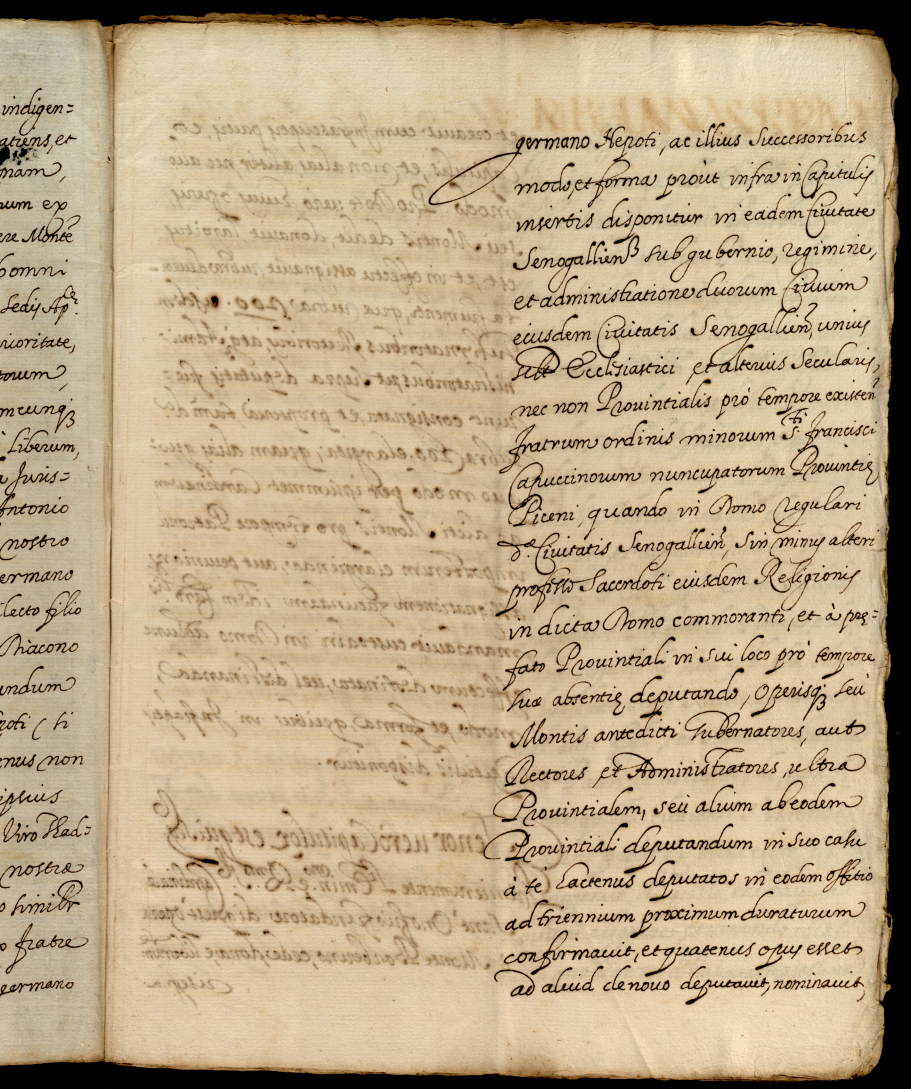 indigen=
atiens, et
mam,
rum ex
ere Monte
omni
Sedis Ap.
uioritate,
torum,
mcunq;
Liberum,
Juris=
Antonio
nostro
ermano
ilecto filio
Diacono
undum
poti ( si
enus non
ipsius
Viro Thad=
nostræ
simili
fratre
germano
germano Nepoti, ac illius Successoribus
modo, et forma proùt infra in Capitulis
insertis disponitur in eadem Ciuitate
Senogallien. sub gubernio, regimine,
et administratione duorum Ciuium
eiusdem Ciuitatis Senogallien, unius
Ecclesiastici, et alterius Secularis,
nec non Prouintialis prò tempore existen
fratrum ordinis minorum S.ti francisci
Capuccinorum nuncupatorum Prouintię
Piceni, quando in Domo regulari
d.æ Ciuitatis Senogallien, sin minus alteri
professo Sacerdoti eiusdem Religionis
in dicta Domo commoranti, et à prę=
fato Prouintiali in sui loco prò tempore
suæ absentię deputando, Operisq; seù
Montis antedicti Gubernatores, aut
Rectores et Administratores, ultra
Prouintialem, seù alium ab eodem
Prouintiali deputandum in suo casu
à te hactenus deputatos in eodem offitio
ad triennium proximum duraturum
confirmauit, et quatenus opus esset
ad aliud de nouo deputauit, nominauit,